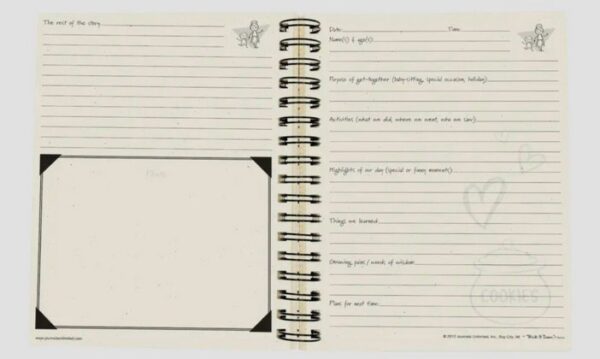 The rest of the story
Photo
www.journalsunlimited.com
Date: Time:
Name(s) & age(s):
Purpose of get-together (baby-sitting, special occasion, holiday):
Activities (what we did, where we went, who we saw):
Highlights of our day (special or funny moments):
Things we learned:
Growing pains / words of wisdom:
Plans for next time:
COOKIES
© 2017 Journals Unlimited, Inc., Bay City, MI ~ "Write it Down!"